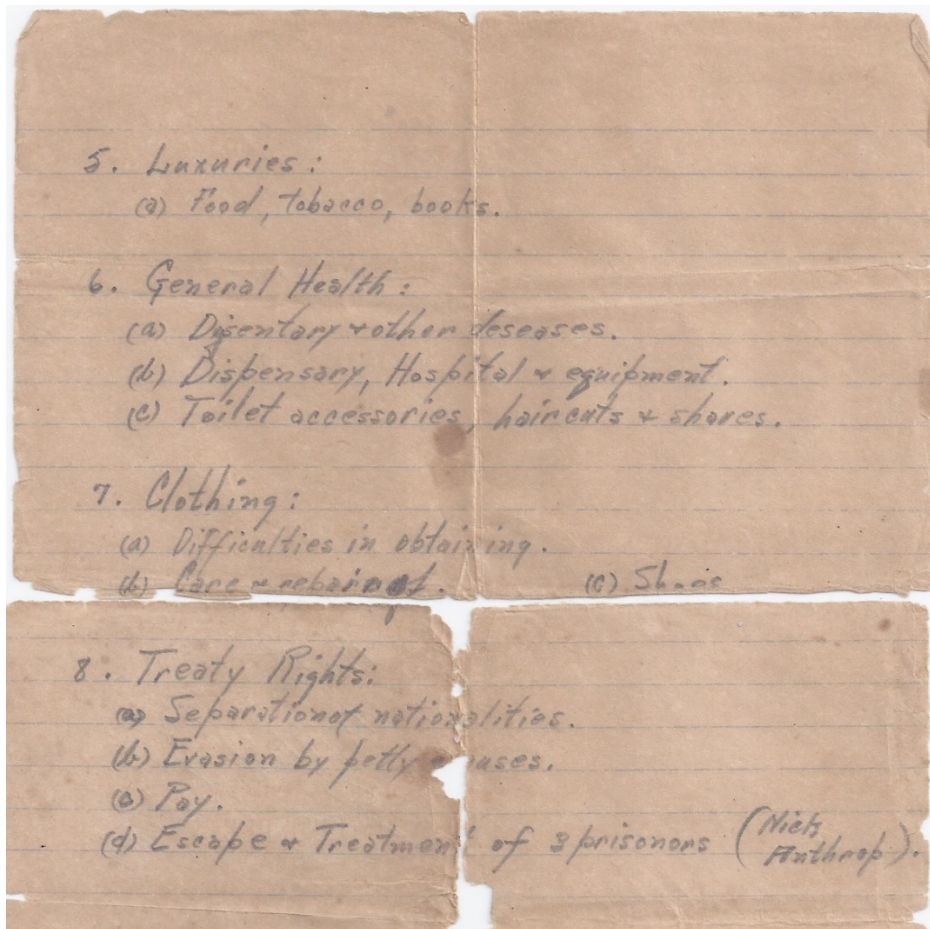 5. Luxuries:
(a) Food, tobacco, books.
6. General Health:
(a) Disentary & other deseases.
(b) Dispensary, Hospital & equipment.
(c) Toilet accessories, haircuts & shaves.
7. Clothing:
(a) Difficulties in obtaining.
(b) Care & repair of. (c) Shoes
8. Treaty Rights:
(a) Separation of nationalities.
(b) Evasion by petty
(c) Pay.
(d) Escape & Treatment of 3 prisonors (Nick
Anthrop).